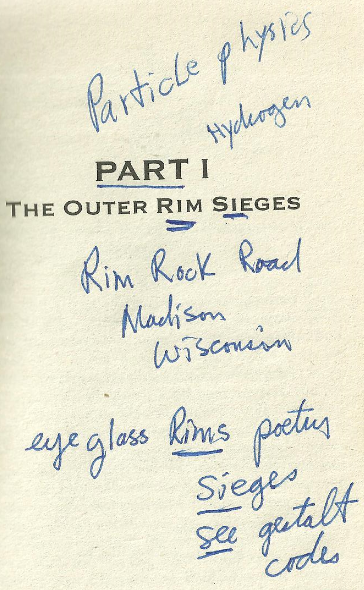 Particle physics
Hydrogen
PART I
THE OUTER RIM SIEGES
Rim Rock Road
Madison
Wisconsin
eye glass Rims poetry
Sieges
see gestalt
codes